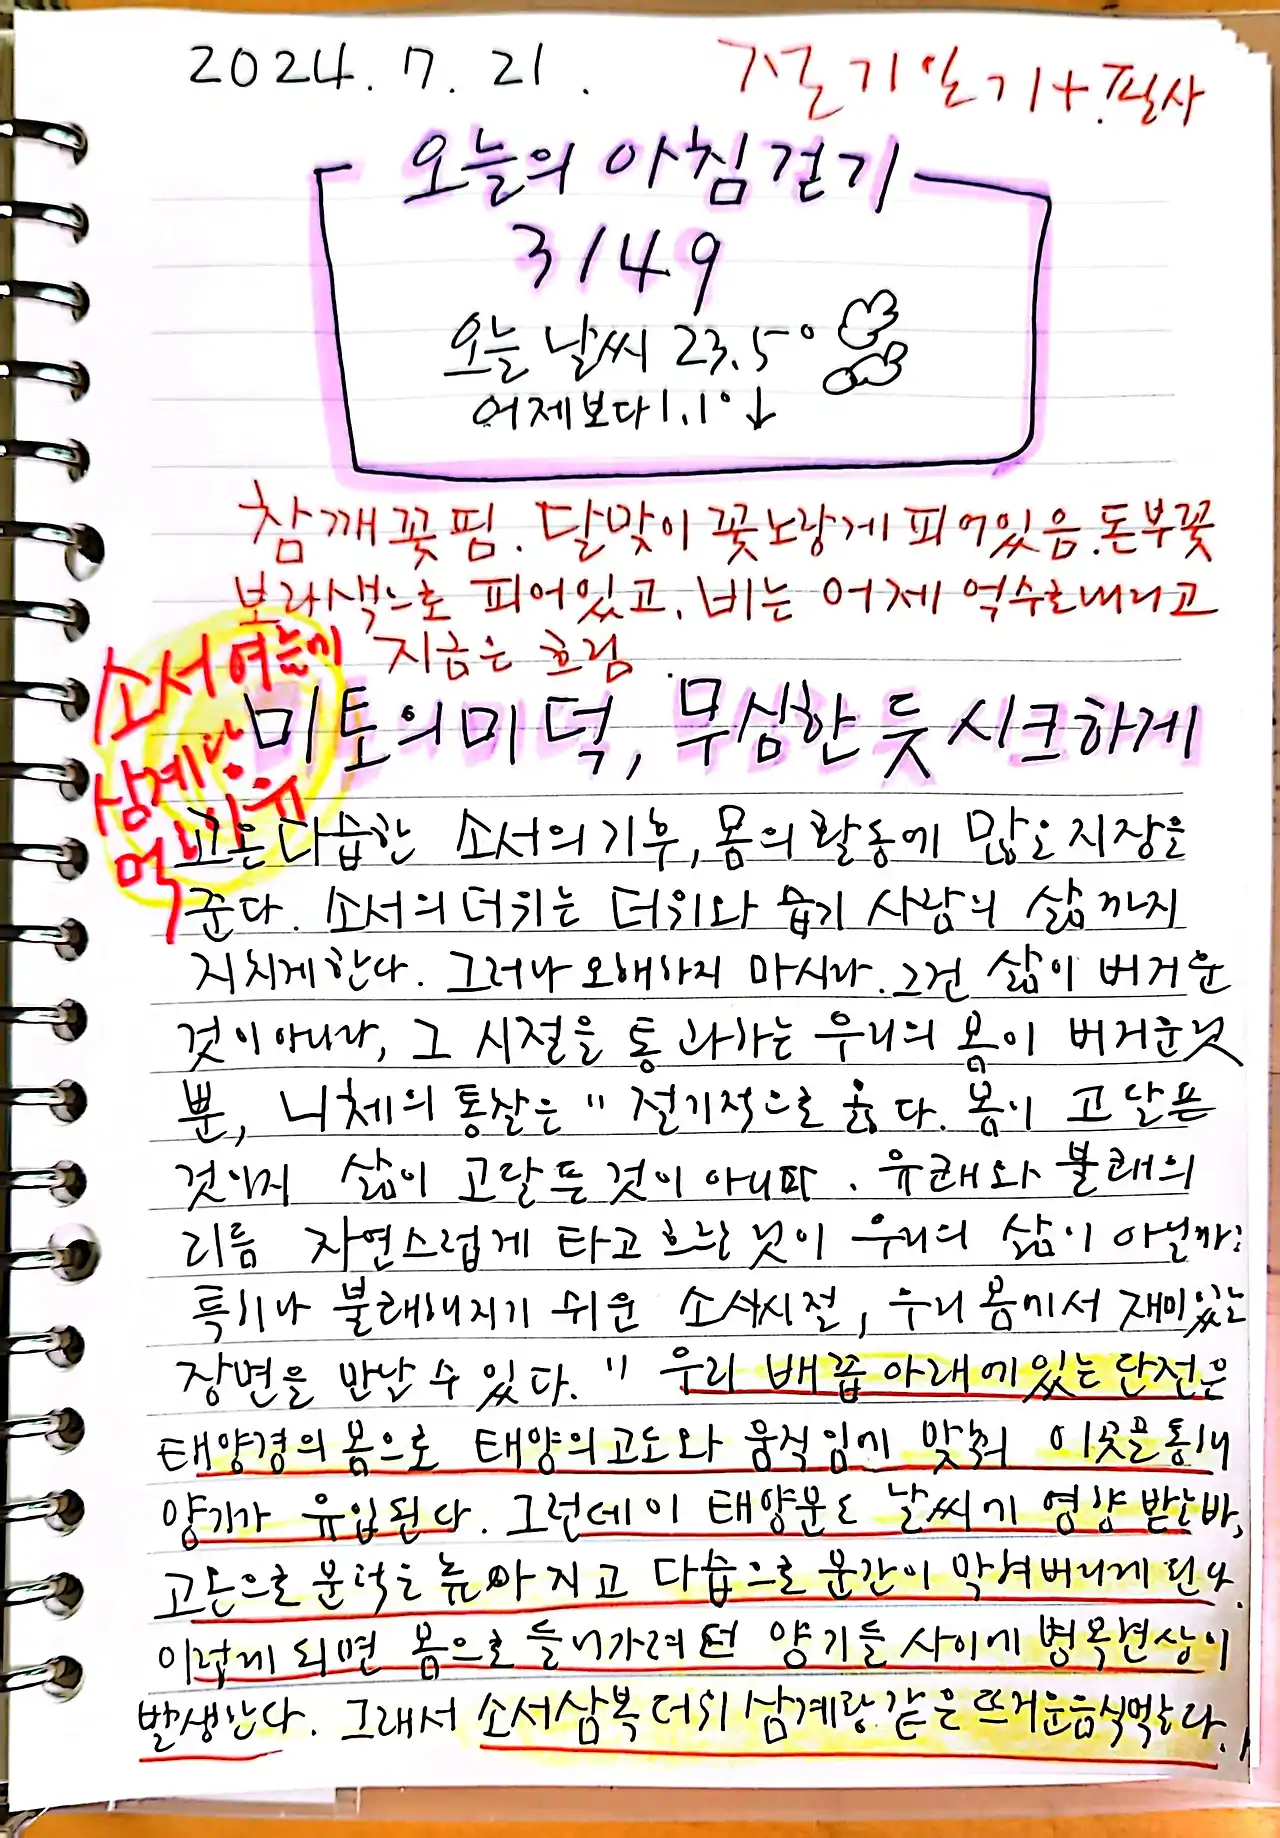 2024. 7. 21.
절기일기+필사
오늘의 아침 걷기
3149
오늘 날씨 23.5°
어제보다 1.1° ↓
참깨꽃핌. 달맞이 꽃 노랗게 피어있음. 돈부꽃
보라색으로 피어있고, 비는 어제 억수로 내리고
지금은 흐림.
소서 여는
삼계탕
먹는 이유
미토의 미덕, 무심한 듯 시크하게
고온다습한 소서의 기후, 몸의 활동에 많은 지장을
준다. 소서의 더위는 더위와 습기 사람의 삶까지
지치게 한다. 그러나 오해하지 마시라. 그건 삶이 버거운
것이 아니라, 그 시절을 통과하는 우리의 몸이 버거운 것
뿐, 니체의 통찰은 " 절기적으로 옳다. 몸이 고달픈
것이지 삶이 고달픈 것이 아니다. 유쾌와 불쾌의
리듬 자연스럽게 타고 흐르는 것이 우리의 삶이 아닐까?
특히나 불쾌해지기 쉬운 소서시절, 우리 몸에서 재미있는
장면을 만날 수 있다. " 우리 배꼽 아래에 있는 단전은
태양경의 몸으로 태양의 고도와 움직임에 맞춰 이곳을 통해
양기가 유입된다. 그런데 이 태양문도 날씨에 영향 받는바,
고온으로 문턱은 낮아지고 다습으로 문간이 막혀버리게 된다.
이렇게 되면 몸으로 들어가려던 양기들 사이에 병목현상이
발생한다. 그래서 소서삼복더위 삼계탕 같은 뜨거운음식먹는다.